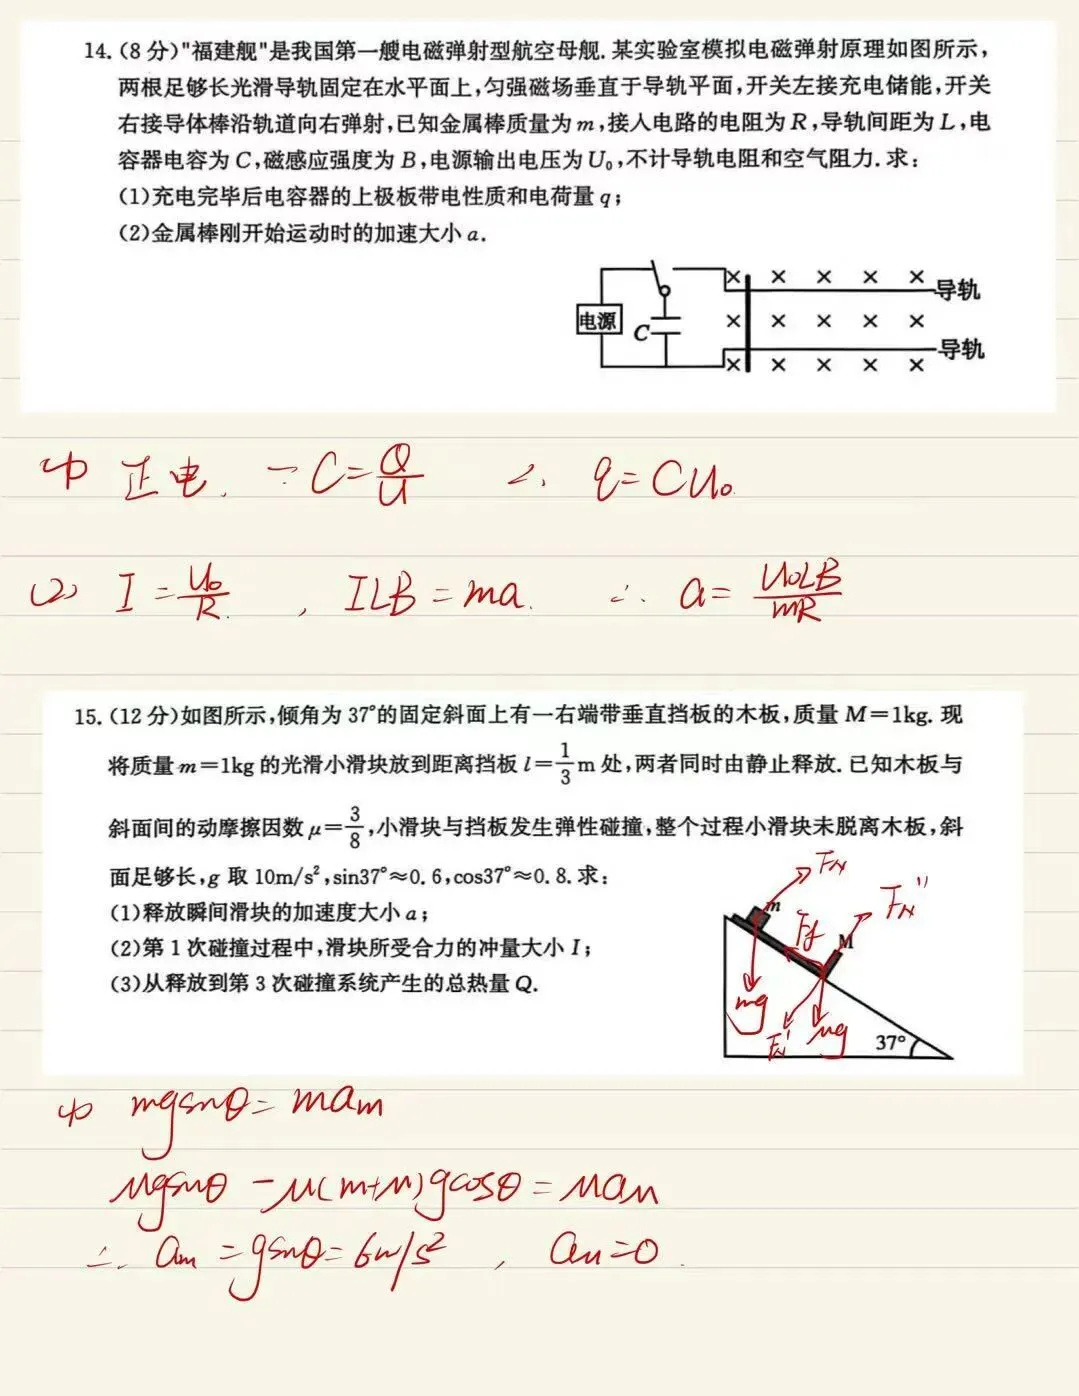 14. (8 分)"福建舰"是我国第一艘电磁弹射型航空母舰. 某实验室模拟电磁弹射原理如图所示,
两根足够长光滑导轨固定在水平面上,匀强磁场垂直于导轨平面,开关左接充电储能,开关
右接导体棒沿轨道向右弹射,已知金属棒质量为 m,接入电路的电阻为 R,导轨间距为 L,电
容器电容为 C,磁感应强度为 B,电源输出电压为 U₀,不计导轨电阻和空气阻力. 求:
(1)充电完毕后电容器的上极板带电性质和电荷量 q;
(2)金属棒刚开始运动时的加速大小 a.
电源
C
导轨
导轨
(1) 正电. ∵ C=Q/U ∴ q=CU₀
(2) I=U₀/R , ILB=ma. ∴ a=U₀LB/mR
15. (12 分)如图所示,倾角为 37°的固定斜面上有一右端带垂直挡板的木板,质量 M=1kg. 现
将质量 m=1kg 的光滑小滑块放到距离挡板 l=1/3 m 处,两者同时由静止释放. 已知木板与
斜面间的动摩擦因数 μ=3/8,小滑块与挡板发生弹性碰撞,整个过程小滑块未脱离木板,斜
面足够长,g 取 10m/s²,sin37°≈0.6,cos37°≈0.8. 求:
(1)释放瞬间滑块的加速度大小 a;
(2)第 1 次碰撞过程中,滑块所受合力的冲量大小 I;
(3)从释放到第 3 次碰撞系统产生的总热量 Q.
F_N
m
F_N''
F_f
M
mg
F_N'
Mg
37°
(1) mgsinθ=ma_m
Mgsinθ-μ(m+M)gcosθ=Ma_M
∴ a_m=gsinθ=6m/s² , a_M=0.